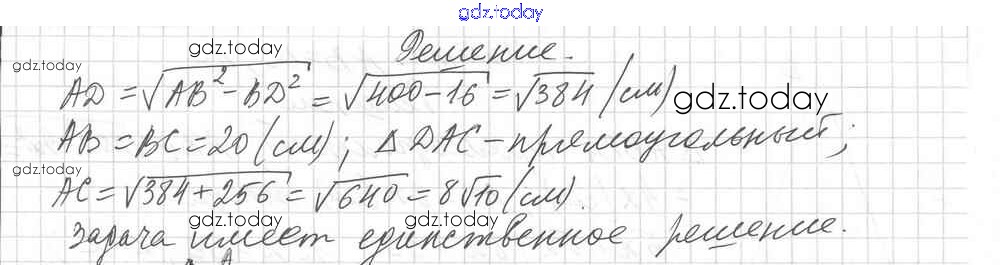 gdz.today
Решение.
gdz.today
gdz.today
AD = √(AB² - BD²) = √(400-16) = √384 (см)
gdz.today
AB = BC = 20 (см); Δ DAC - прямоугольный;
gdz.today
AC = √(384+256) = √640 = 8√10 (см).
gdz.today gdz.today
Задача имеет единственное решение.
A